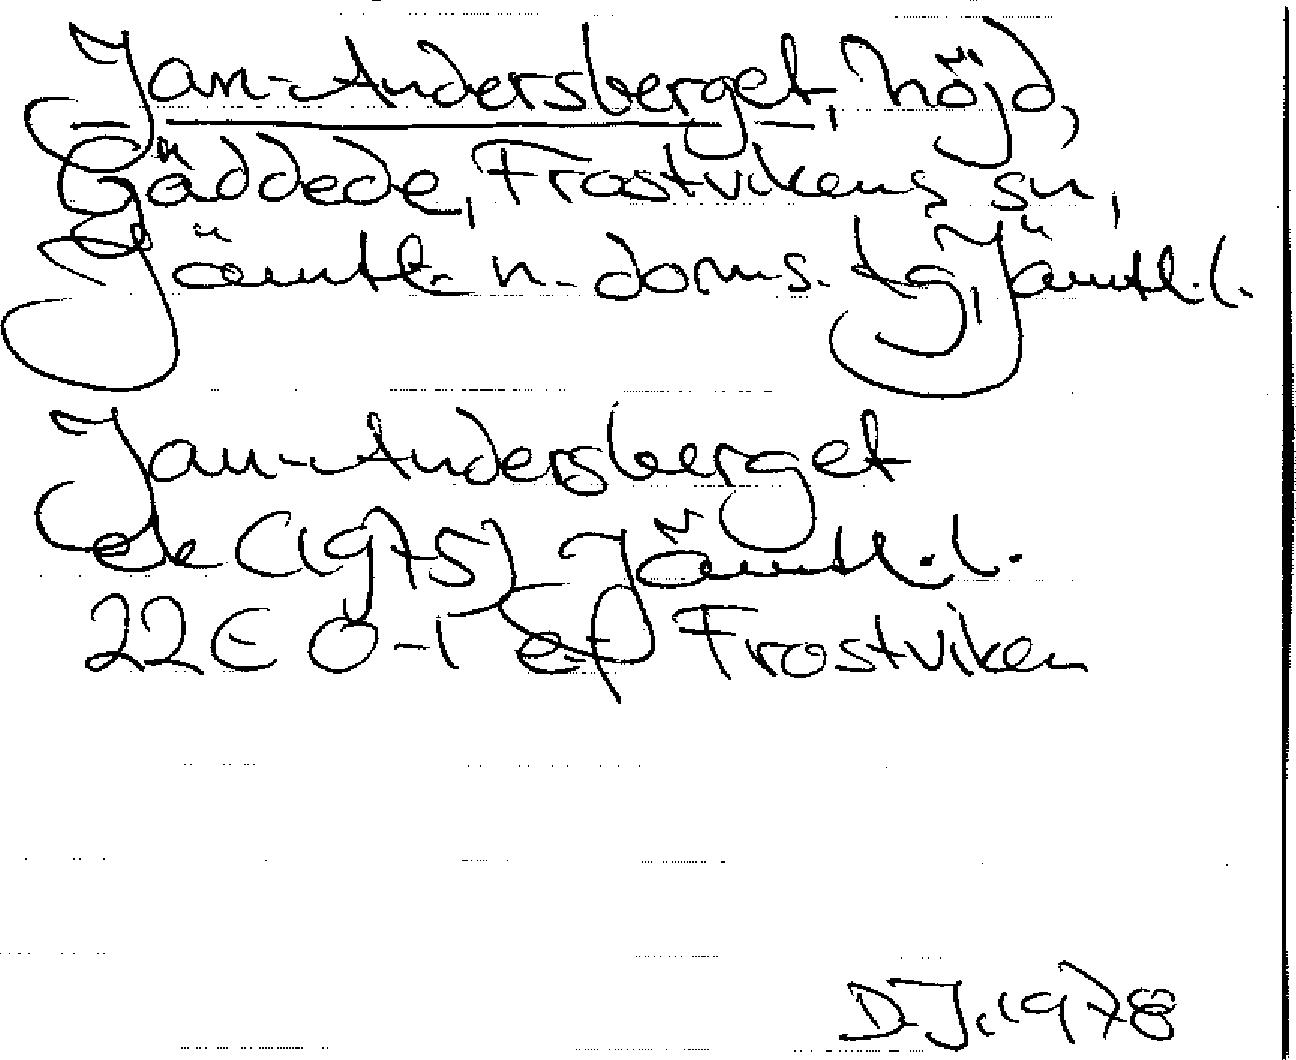 Jan-Andersberget, höjd,
Gäddede, Frostvikens sn,
Jämtl. n. doms. tg, Jämtl.l.
Jan-Andersberget
ek (1975) Jämtl.l.
22E 0-1 ef Frostviken
D.J. 1978